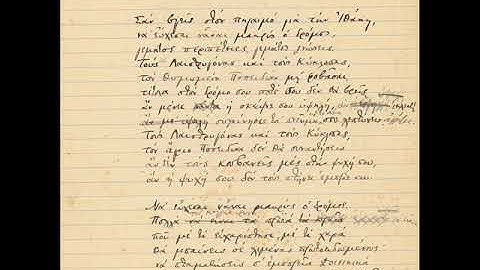 Σὰν βγεῖς στὸν πηγαιμὸ γιὰ τὴν Ἰθάκη,
νὰ εὔχεσαι νἆναι μακρὺς ὁ δρόμος,
γεμάτος περιπέτειες, γεμάτος γνώσεις.
Τοὺς Λαιστρυγόνας καὶ τοὺς Κύκλωπας,
τὸν θυμωμένο Ποσειδῶνα μὴ φοβᾶσαι,
τέτοια στὸν δρόμο σου ποτέ σου δὲν θὰ βρεῖς,
ἂν μέν' ἡ σκέψις σου ὑψηλή, ἂν ἐκλεκτὴ
συγκίνησις τὸ πνεῦμα
Τοὺς Λαιστρυγόνας καὶ τοὺς Κύκλωπας,
τὸν ἄγριο Ποσειδῶνα δὲν θὰ συναντήσεις
ἂν δὲν τοὺς κουβανεῖς μὲς στὴν ψυχή σου,
ἂν ἡ ψυχή σου δὲν τοὺς στήνει ἐμπρός σου.
Νὰ εὔχεσαι νἆναι μακρὺς ὁ δρόμος.
Πολλὰ
ποῦ μὲ τί εὐχαρίστησι, μὲ τί χαρὰ
θὰ μπαίνεις σὲ λιμένας πρωτοειδωμένους·
νὰ σταματήσεις σ' ἐμπορεῖα Φοινικικὰ